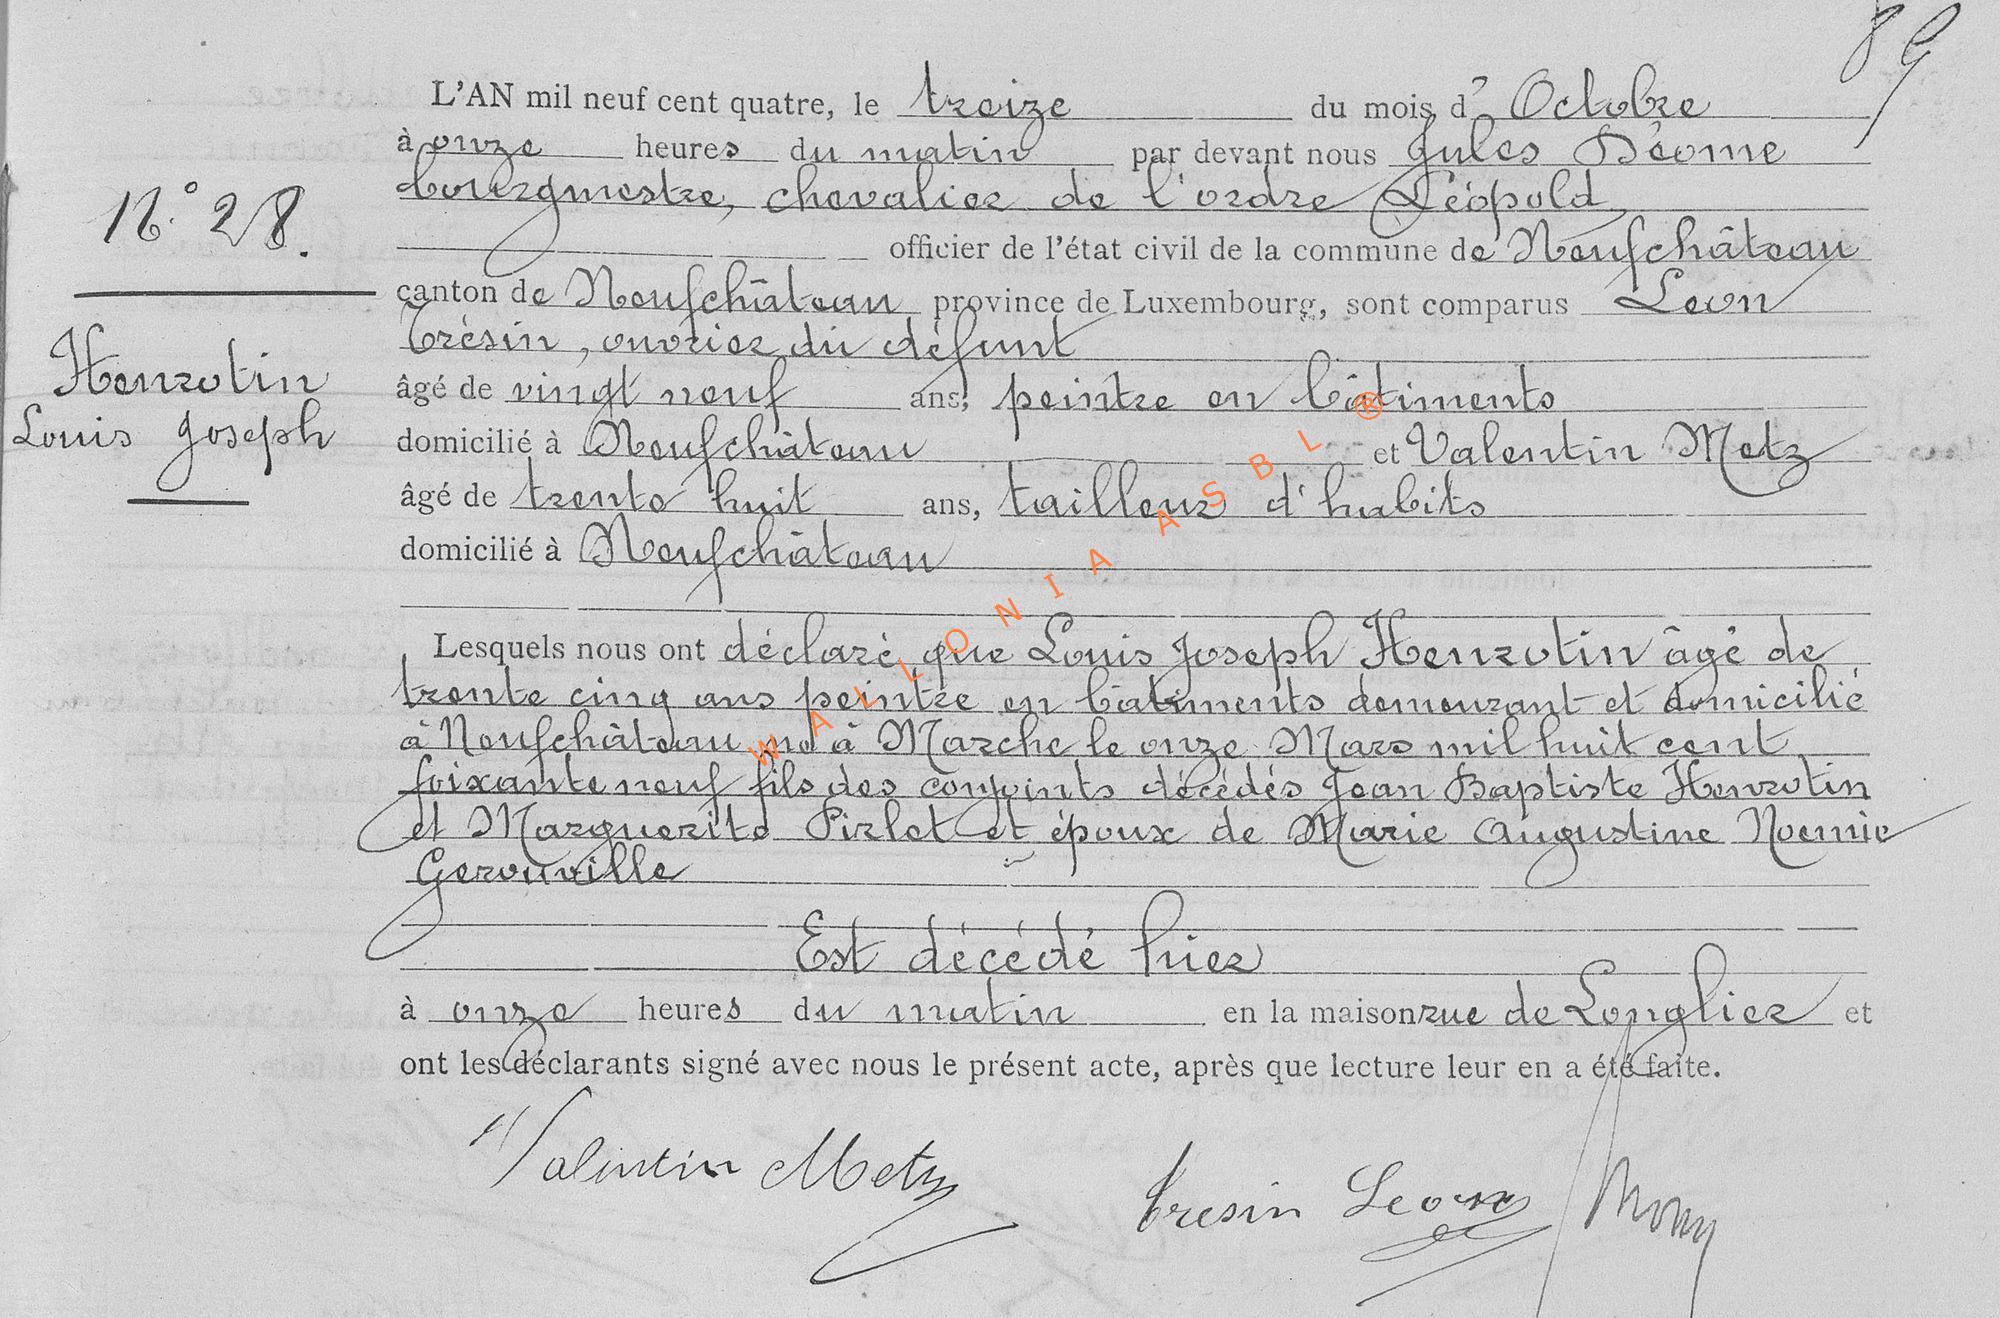 89
L'AN mil neuf cent quatre, le treize du mois d' Octobre
à onze heures du matin par devant nous Jules Déome
bourgmestre, chevalier de l'ordre Léopold
N° 28.
officier de l'état civil de la commune de Neufchâteau
canton de Neufchâteau province de Luxembourg, sont comparus Leon
Trésin, ouvrier du défunt
Henrotin
âgé de vingt neuf ans, peintre en bâtiments
Louis Joseph
domicilié à Neufchâteau et Valentin Metz
âgé de trente huit ans, tailleur d'habits
domicilié à Neufchâteau
Lesquels nous ont déclaré que Louis Joseph Henrotin âgé de
trente cinq ans peintre en bâtiments demeurant et domicilié
à Neufchâteau né à Marche le onze Mars mil huit cent
soixante neuf fils des conjoints décédés Jean Baptiste Henrotin
et Marguerite Pirlot et époux de Marie Augustine Noemie
Gerouville
Est décédé hier
à onze heures du matin en la maison rue de Longlier et
ont les déclarants signé avec nous le présent acte, après que lecture leur en a été faite.
Valentin Metz
Tresin Leon
WALLONIA ASBL ®